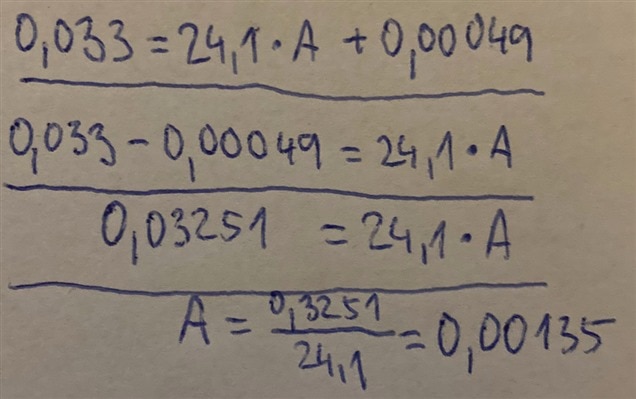 0,033 = 24,1 · A + 0,00049
0,033 - 0,00049 = 24,1 · A
0,03251 = 24,1 · A
A = 0,3251/24,1 = 0,00135